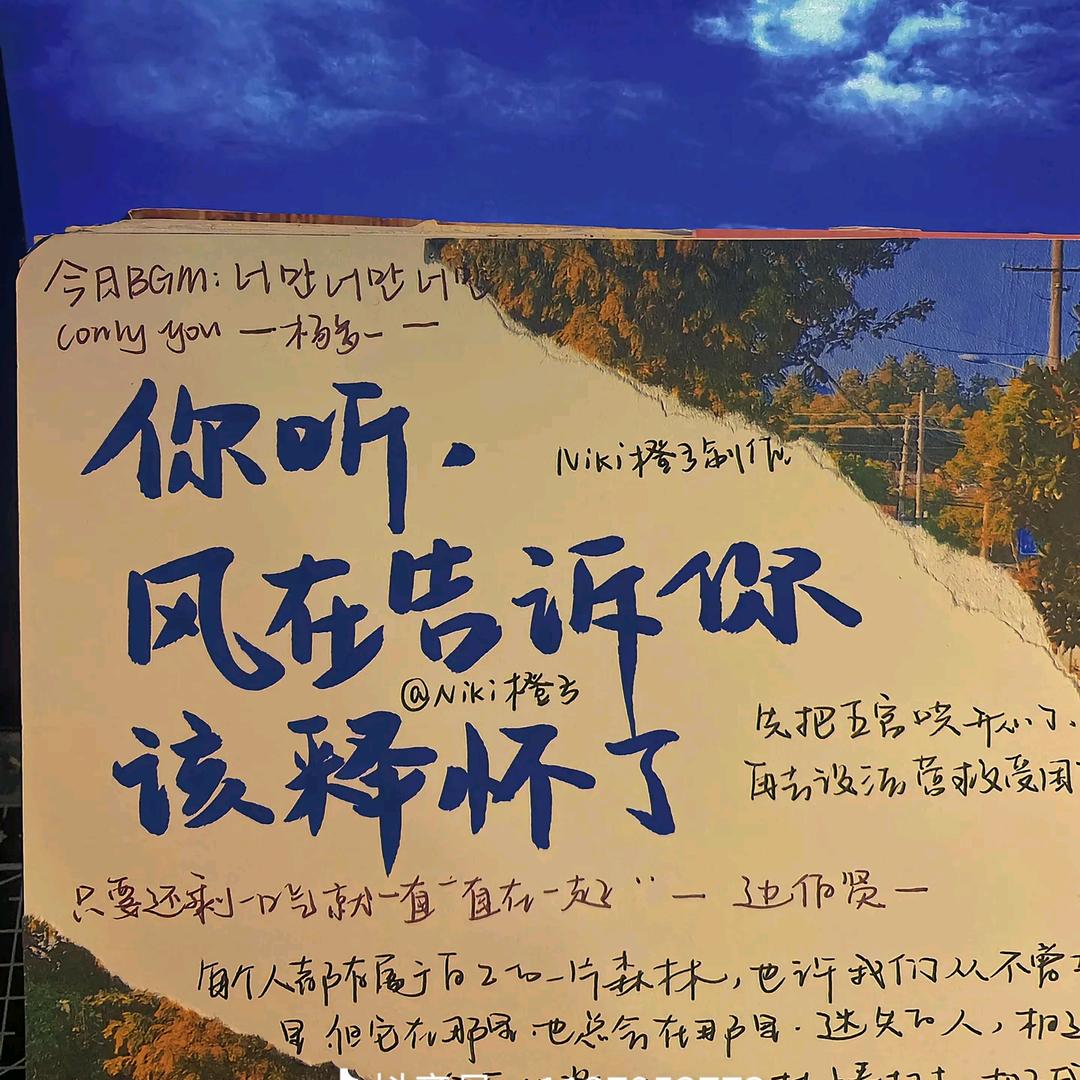 今日BGM: 너만 너만 너만
(only you 一杨多一 一
你听.
Niki橙子制作.
风在告诉你
@Niki橙子
该释怀了
先把五官哄开心了.
再去设法营救受困
只要还剩一口气就一直一直在一起 — 边伯贤 —
每个人都有属于自己的一片森林，也许我们从不曾
里 但它在那里.也总会在那里.迷失的人，相